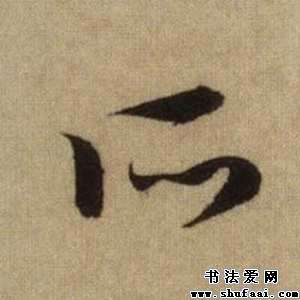 所
书法爱网
www.shufaai.com